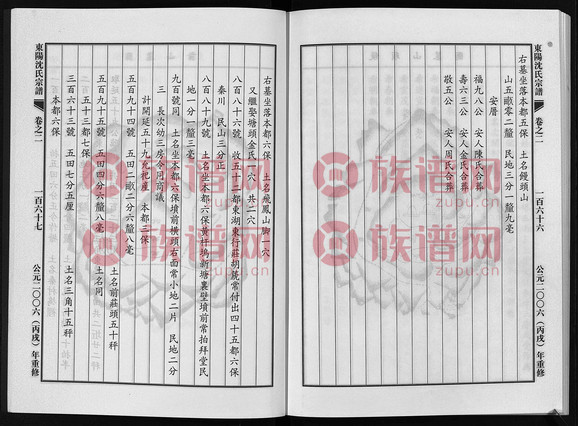 東陽沈氏宗譜
卷之二
一百六十六
公元二〇〇六（丙戌）年重修
右墓坐落本都五保　土名饅頭山
山五畝零二釐　民地三分一釐九毫
安厝
福九八公　安人陳氏合葬
壽六三公　安人金氏合葬
敬五公　安人周氏合葬
右墓坐落本都六保　土名飛鳳山腳一穴
又繼娶塘頭金氏一穴　共二穴
八百八十六號　收五十二都東湖東行莊胡號常付出四十五都六保
秦川　民山三分正
八百八十九號　土名坐本都六保黃样塢新塘裏壁墳前常拍拜堂民
地一分一釐三毫
九百號同　土名坐本都六保墳前橫頭右面常小地二片　民地二分
三　長次幼三房令同商議
計開延五十九常祀產　本都二保
五百九十四號　五田二畝二分六釐八毫　土名前莊頭五十秤
五百九十五號　五田四分六釐八毫　土名同
五十三都七保
三百六十三號　五田七分五厘　土名三角十五秤
本都六保
東陽沈氏宗譜
卷之二
一百六十七
公元二〇〇六（丙戌）年重修
族谱网
族谱网